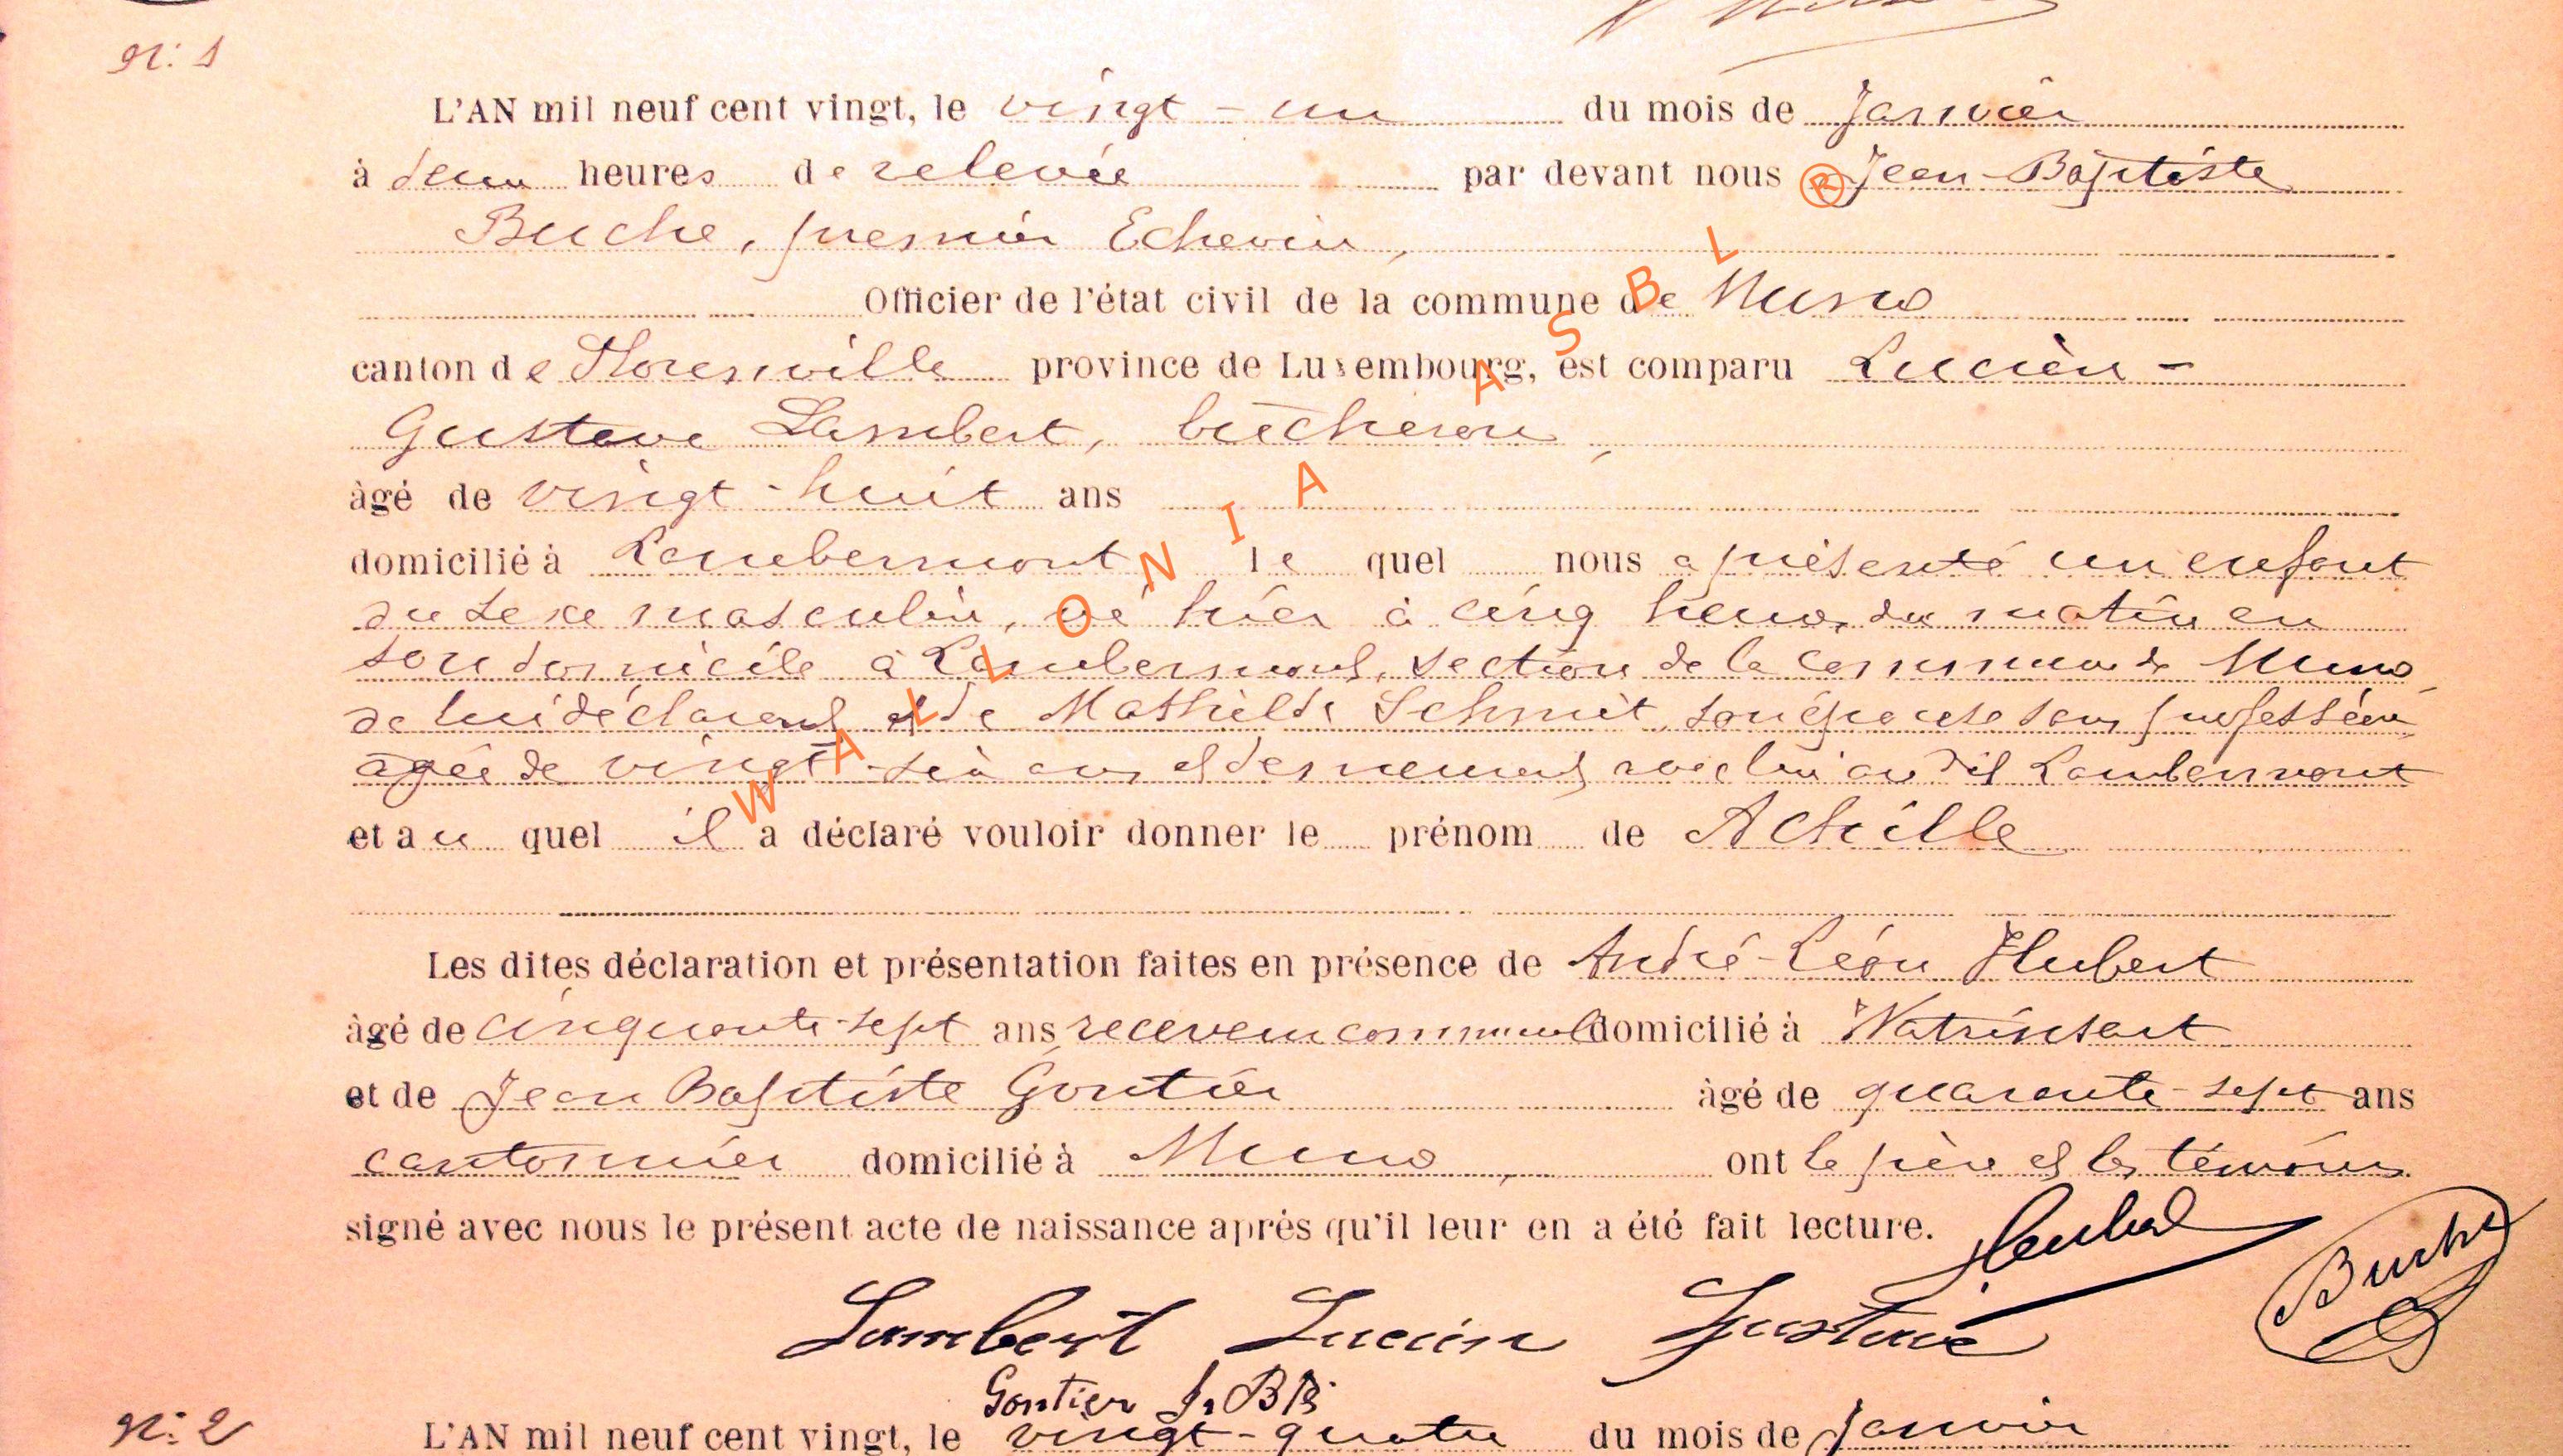 N: 1
L'AN mil neuf cent vingt, le vingt-un du mois de Janvier
à deux heures de relevée par devant nous Jean-Baptiste
Buche, premier Echevin,
Officier de l'état civil de la commune de Muno
canton de Florenville province de Luxembourg, est comparu Lucien-
Gustave Lambert, bûcheron,
âgé de vingt-huit ans
domicilié à Lambermont le quel nous a présenté un enfant
du sexe masculin, né hier à cinq heures du matin en
son domicile à Lambermont, section de la commune de Muno
de lui déclarant et de Mathilde Schmit, son épouse sans profession
âgée de vingt-six ans et demeurant avec lui au dit Lambermont
et au quel il a déclaré vouloir donner le prénom de Achille
Les dites déclaration et présentation faites en présence de André-Léon Hubert
âgé de cinquante-sept ans receveur communal domicilié à Watrinsart
et de Jean Baptiste Gontier âgé de quarante-sept ans
cantonnier domicilié à Muno, ont le père et les témoins
signé avec nous le présent acte de naissance après qu'il leur en a été fait lecture.
Buche
Lambert Lucien Gustave
Gontier J. Bte
N: 2
L'AN mil neuf cent vingt, le vingt-quatre du mois de Janvier
WALLONIA ASBL ®